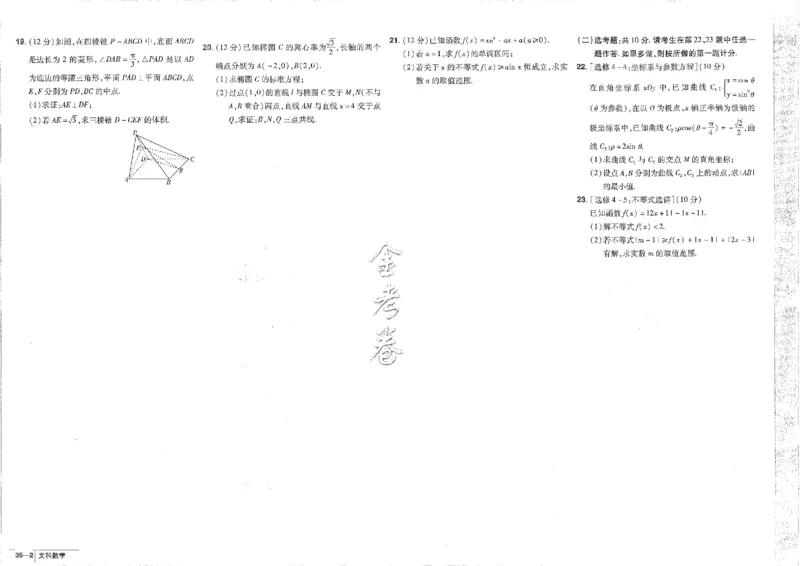 19. (12分)如图,在四棱锥 P-ABCD 中,底面 ABCD
是边长为 2 的菱形,∠DAB=π/3,△PAD 是以 AD
为底边的等腰三角形,平面 PAD⊥平面 ABCD,点
E,F 分别为 PD,BC 的中点.
(1)求证:AE⊥DF;
(2)若 AE=√3,求三棱锥 D-CEF 的体积.
P
E
D
C
F
A
B
20. (12分)已知椭圆 C 的离心率为√3/2,长轴的两个
端点分别为 A(-2,0),B(2,0).
(1)求椭圆 C 的标准方程;
(2)过点(1,0)的直线 l 与椭圆 C 交于 M,N(不与
A,B 重合)两点,直线 AM 与直线 x=4 交于点
Q,求证:B,N,Q 三点共线.
21. (12分)已知函数 f(x)=xeˣ-ax+a(a≥0).
(1)若 a=1,求 f(x)的单调区间;
(2)若关于 x 的不等式 f(x)≥aln x 恒成立,求实
数 a 的取值范围.
(二)选考题:共10分.请考生在第22,23题中任选一
题作答.如果多做,则按所做的第一题计分.
22. [选修4-4:坐标系与参数方程](10分)
在直角坐标系 xOy 中,已知曲线 C₁:{x=cos θ
y=sin²θ
(θ为参数),在以 O 为极点,x 轴正半轴为极轴的
极坐标系中,已知曲线 C₂:ρcos(θ-π/4)=-√2/2,曲
线 C₃:ρ=2sin θ.
(1)求曲线 C₁ 与 C₂ 的交点 M 的直角坐标;
(2)设点 A,B 分别为曲线 C₂,C₃ 上的动点,求|AB|
的最小值.
23. [选修4-5:不等式选讲](10分)
已知函数 f(x)=|2x+1|-|x-1|.
(1)解不等式 f(x)<2.
(2)若不等式|m-1|≥f(x)+|x-1|+|2x-3|
有解,求实数 m 的取值范围.
金
考
卷
35—2 文科数学